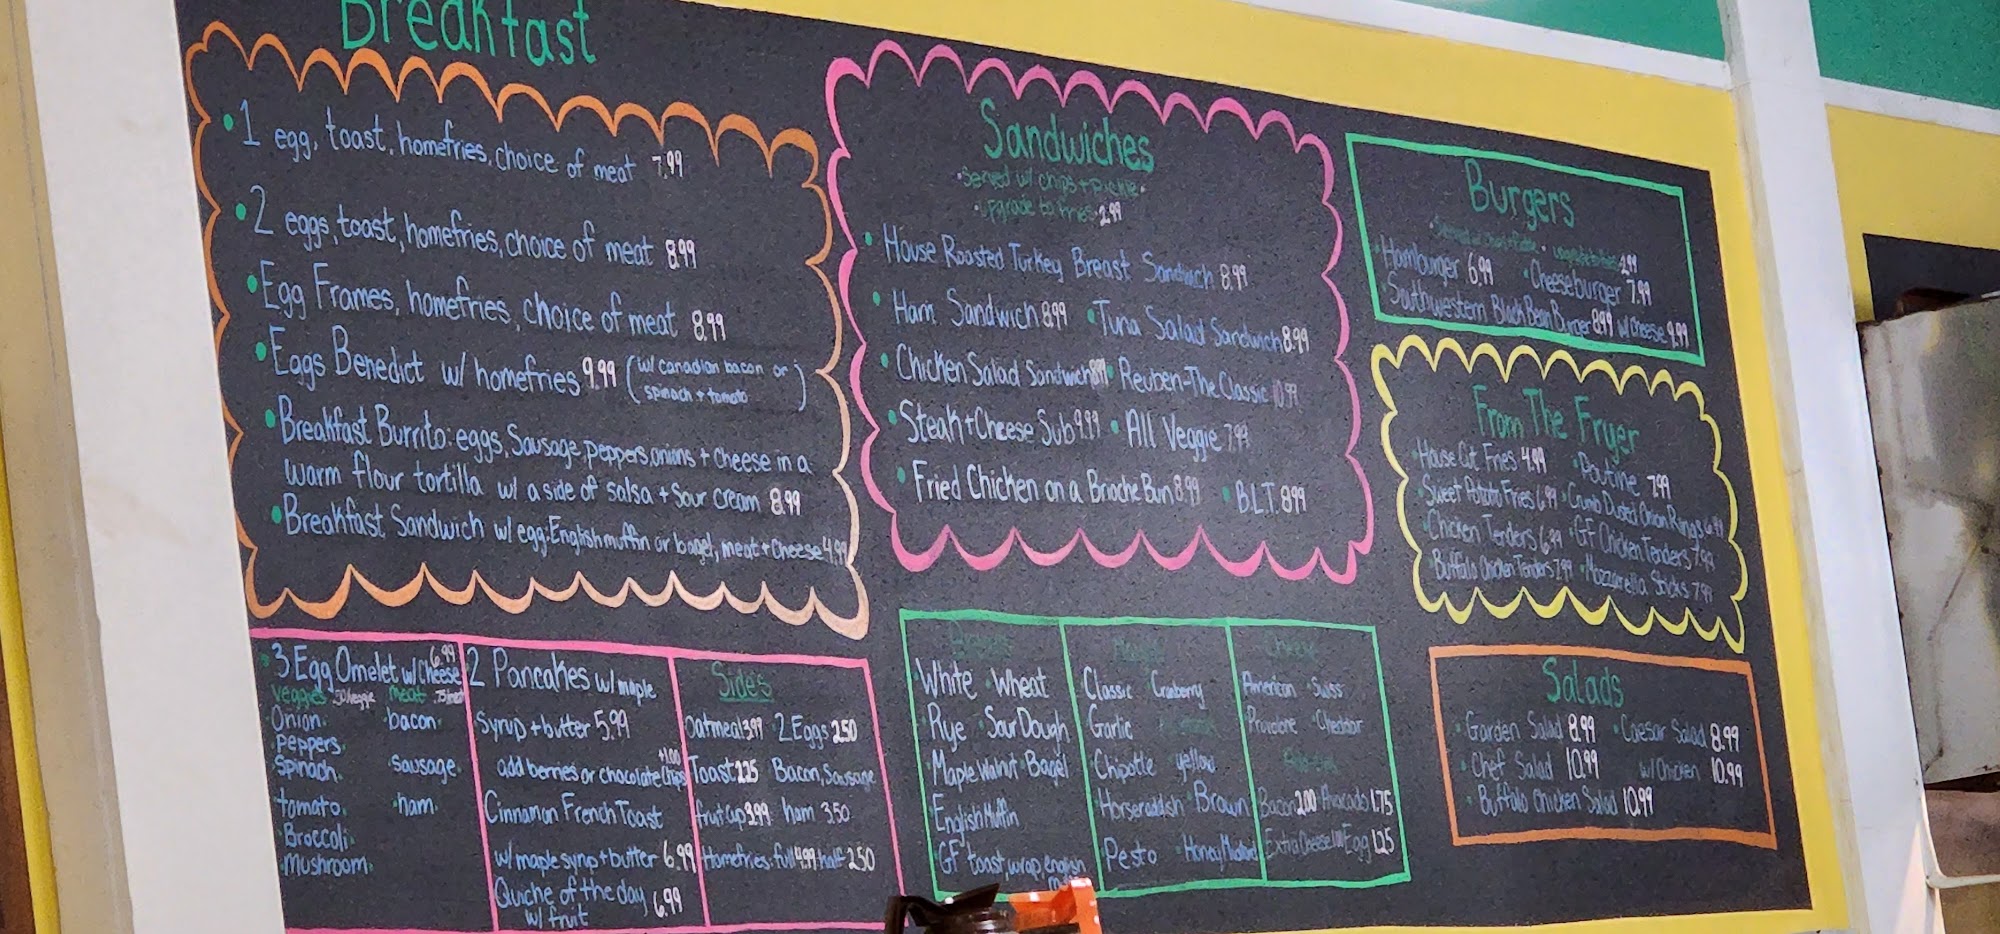 Breakfast
• 1 egg, toast, homefries, choice of meat 7.99
• 2 eggs, toast, homefries, choice of meat 8.99
• Egg Frames, homefries, choice of meat 8.99
• Eggs Benedict w/ homefries 9.99 (w/ canadian bacon or
spinach + tomato)
• Breakfast Burrito: eggs, Sausage, peppers, onions + cheese in a
warm flour tortilla w/ a side of salsa + sour cream 8.99
• Breakfast Sandwich w/ egg: English muffin or bagel, meat + cheese 4.99
• 3 Egg Omelet w/ Cheese 6.99
veggies .50/veggie meat .75/meat
Onion bacon
Peppers
Spinach sausage
tomato ham
Broccoli
mushroom
2 Pancakes w/ maple
syrup + butter 5.99
add berries or chocolate chips +1.00
Cinnamon French Toast
w/ maple syrup + butter 6.99
Quiche of the day 6.99
w/ fruit
Side's
Oatmeal 3.99 2 Eggs 2.50
Toast 1.25 Bacon, Sausage
fruit cup 3.99 ham 3.50
Homefries: full 4.99 half 2.50
Sandwiches
• Served w/ chips + pickle •
• upgrade to fries • 2.99
• House Roasted Turkey Breast Sandwich 8.99
• Ham Sandwich 8.99 • Tuna Salad Sandwich 8.99
• Chicken Salad Sandwich 8.99 • Reuben-The Classic 10.99
• Steak + Cheese Sub 9.99 • All Veggie 7.99
• Fried Chicken on a Brioche Bun 8.99 • B.L.T. 8.99
Breads
White • Wheat
Rye • Sour Dough
Maple Walnut • Bagel
English Muffin
• GF toast, wrap, english
Classic Cranberry
Garlic
Chipotle yellow
Horseradish Brown
Pesto • Honey Mustard
Cheese
American • Swiss
Provolone • Cheddar
Bacon 2.00 Avocado 1.75
Extra Cheese 1.00 Egg 1.25
Burgers
• upgrade to fries 2.99
• Hamburger 6.99 • Cheeseburger 7.99
• Southwestern Black Bean Burger 8.99 w/ cheese 9.99
From The Fryer
• House Cut Fries 4.99 • Poutine 7.99
• Sweet Potato Fries 6.99 • Crumb Dusted Onion Rings 6.99
• Chicken Tenders 6.99 • GF Chicken Tenders 7.99
• Buffalo Chicken Tenders 7.99 • Mozzarella Sticks 7.99
Salads
• Garden Salad 8.99 • Caesar Salad 8.99
• Chef Salad 10.99 w/ Chicken 10.99
• Buffalo Chicken Salad 10.99